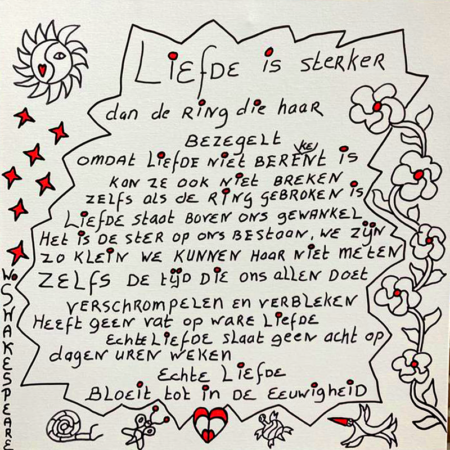 Liefde is sterker
dan de Ring die haar
Bezegelt
omdat Liefde niet BeReNt is
kan ze ook niet breken
zelfs als de Ring gebroken is
Liefde staat boven ons gewankel
Het is de ster op ons bestaan, we zijn
zo klein we kunnen haar niet meten
Zelfs de tijd die ons allen doet
verschrompelen en verbleken
Heeft geen vat op ware Liefde
echte Liefde slaat geen acht op
dagen uren weken
Echte Liefde
Bloeit tot in de eeuwigheid
Wo SHAKESPEARE